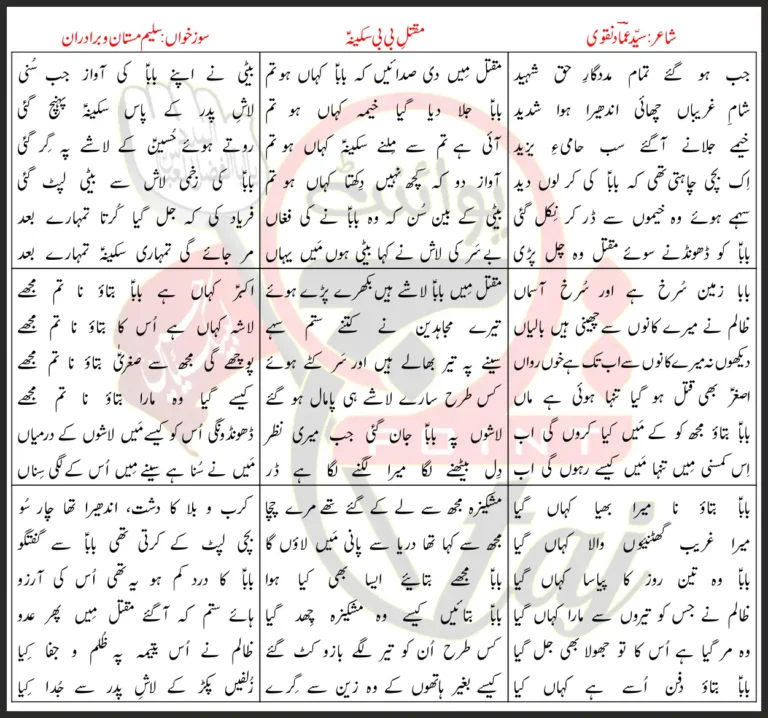 شاعر: سیّد عمّاد نقوی
مقتل بی بی سکینہؑ
سوز خواں: سلیم مستان و برادران
جب ہو گئے تمام مددگارِ حق شہید
شامِ غریباں چھائی اندھیرا ہوا شدید
خیمے جلانے آگئے سب حامیءِ یزید
اِک بچی چاہتی تھی کہ باباؑ کی کر لوں دید
سہمے ہوئے وہ خیموں سے ڈر کر نِکل گئی
باباؑ کو ڈھونڈنے سوئے مقتل وہ چل پڑی
مقتل میں دی صدائیں کہ باباؑ کہاں ہو تم
باباؑ جلا دیا گیا خیمہ کہاں ہو تم
آئی ہے تم سے مِلنے سکینہؑ کہاں ہو تم
آواز دو کہ کچھ نہیں دِکھتا کہاں ہو تم
بیٹی کے بین سن کہ وہ باباؑ نے کی فغاں
بے سَر کی لاش نے کہا بیٹی ہوں مَیں یہاں
بیٹی نے اپنے باباؑ کی آواز جب سُنی
لاشِ پدر کے پاس سکینہؑ پہنچ گئی
روتے ہوئے حُسینؑ کے لاشے پہ گِر گئی
باباؑ کی زخمی لاش سے بیٹی لپٹ گئی
فریاد کی کہ جل گیا کُرتا تمہارے بعد
مر جائے گی تمہاری سکینہؑ تمہارے بعد
بابا زمین سُرخ ہے اور سُرخ آسماں
ظالم نے میرے کانوں سے چھینی ہیں بالیاں
دیکھوں نہ میرے کانوں سے اب تک ہے خوں رواں
اصغرؑ بھی قتل ہو گیا تنہا ہوئی ہے ماں
باباؑ بتاؤ مجھ کو کے مَیں کیا کروں گی اب
اِس کمسنی میں تنہا مَیں کیسے رہوں گی اب
مقتل میں باباؑ لاشے ہیں بکھرے پڑے ہوئے
تیرے مجاہدین نے کتنے ستم سہے
سینے پہ تیر بھالے ہیں اور سَر کٹے ہوئے
کس طرح سارے لاشے ہی پامال ہو گئے
لاشوں پہ باباؑ جان گئی جب میری نظر
دِل بیٹھنے لگا میرا لگنے لگا ہے ڈر
اکبرؑ کہاں ہے باباؑ بتاؤ نا تم مجھے
لاشہ کہاں ہے اُس کا بتاؤ نا تم مجھے
پوچھے گی مجھ سے صغریٰؑ بتاؤ نا تم مجھے
کیسے گیا وہ مارا بتاؤ نا تم مجھے
ڈھونڈونگی اُس کو کیسے مَیں لاشوں کے درمیاں
مَیں نے سُنا ہے سینے میں اُس کے لگی سِناں
باباؑ بتاؤ نا میرا بھیا کہاں گیا
میرا غریب گھٹنیوں والا کہاں گیا
باباؑ وہ تین روز کا پیاسا کہاں گیا
ظالم نے جس کو تیروں سے مارا کہاں گیا
وہ مر گیا ہے اُس کا تو جھولا بھی جل گیا
باباؑ بتاؤ دفن اُسے ہے کہاں کیا
مشکیزہ مجھ سے لے کے گئے تھے مرے چچا
مجھ سے کہا تھا دریا سے پانی مَیں لاؤں گا
باباؑ مجھے بتایئے ایسا بھی کیا ہوا
باباؑ بتائیں کیسے وہ مشکیزہ چھد گیا
کس طرح اُن کو تیر لگے بازو کٹ گئے
کیسے بغیر ہاتھوں کے وہ زین سے گِرے
کرب و بلا کا دشت، اندھیرا تھا چار سُو
بچی لپٹ کے کرتی تھی باباؑ سے گفتگو
باباؑ کا درد کم ہو یہ تھی اُس کی آرزو
ہائے ستم کہ آگئے مقتل میں پھر عدو
ظالم نے اُس یتیمہ پہ ظُلم و جفا کِیا
زُلفیں پکڑ کے لاشِ پدر سے جُدا کِیا
پوائنٹ
POINT
taj